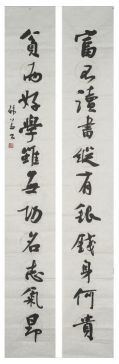 富不讀書縱有銀錢身何貴
貧而好學雖無功名志氣昂